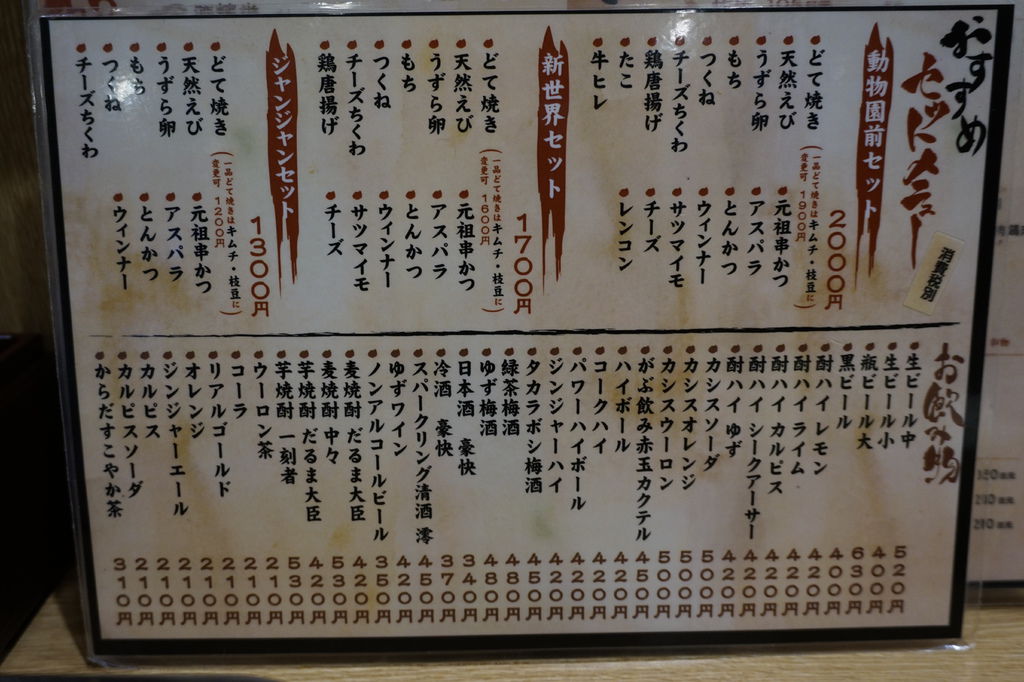 おすすめ
セットメニュー
消費税別
動物園前セット
2000円
(一品どて焼きはキムチ・枝豆に
変更可 1900円)
どて焼き
天然えび
うずら卵
もち
つくね
チーズちくわ
鶏唐揚げ
たこ
牛ヒレ
元祖串かつ
アスパラ
とんかつ
ウィンナー
サツマイモ
チーズ
レンコン
新世界セット
1700円
(一品どて焼きはキムチ・枝豆に
変更可 1600円)
どて焼き
天然えび
うずら卵
もち
つくね
チーズちくわ
鶏唐揚げ
元祖串かつ
アスパラ
とんかつ
ウィンナー
サツマイモ
チーズ
ジャンジャンセット
1300円
(一品どて焼きはキムチ・枝豆に
変更可 1200円)
どて焼き
天然えび
うずら卵
もち
つくね
チーズちくわ
元祖串かつ
アスパラ
とんかつ
ウィンナー
お飲み物
生ビール中 520円
生ビール小 400円
瓶ビール大 630円
黒ビール 400円
酎ハイレモン 420円
酎ハイライム 420円
酎ハイカルピス 420円
酎ハイシークアーサー 420円
酎ハイゆず 420円
カシスソーダ 500円
カシスオレンジ 500円
カシスウーロン 500円
がぶ飲み赤玉カクテル 450円
ハイボール 420円
コークハイ 420円
パワーハイボール 420円
ジンジャーハイ 420円
タカラボシ梅酒 450円
緑茶梅酒 480円
ゆず梅酒 480円
日本酒 豪快 340円
冷酒 豪快 370円
スパークリング清酒 澪 450円
ゆずワイン 420円
ノンアルコールビール 350円
麦焼酎 だるま大臣 420円
麦焼酎 中々 530円
芋焼酎 だるま大臣 420円
芋焼酎 一刻者 530円
ウーロン茶 210円
コーラ 210円
リアルゴールド 210円
オレンジ 210円
ジンジャーエール 210円
カルピス 210円
カルピスソーダ 210円
からだすこやか茶 310円